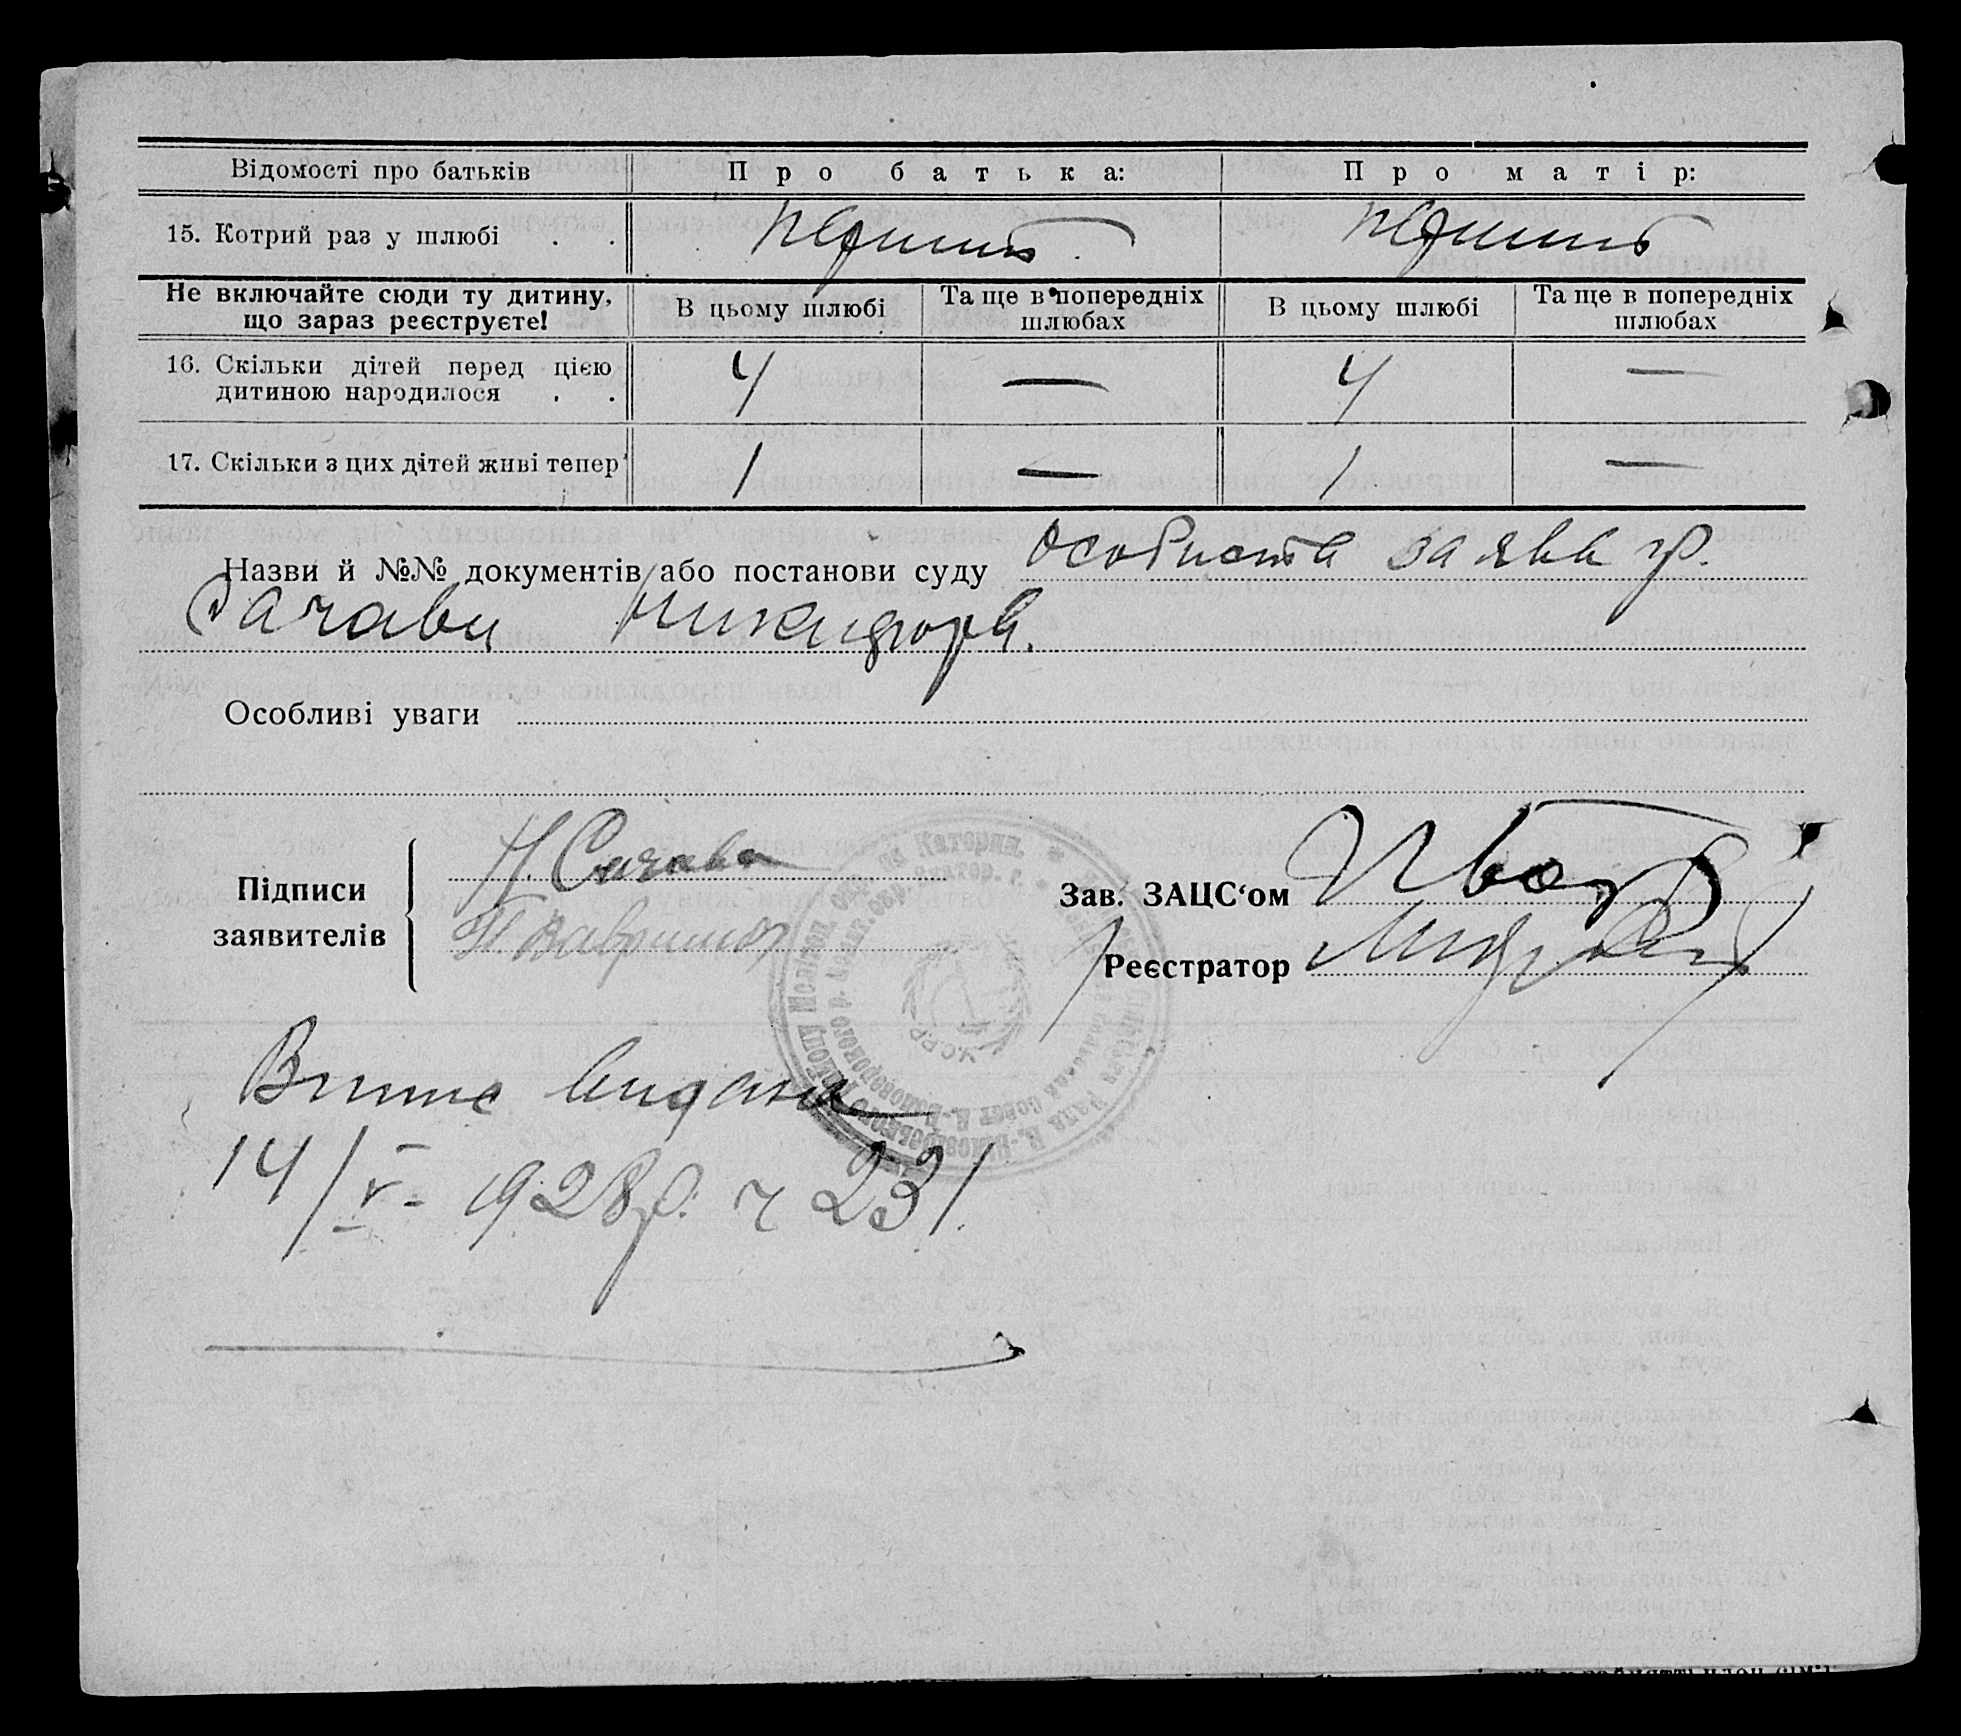 Відомості про батьків Про батька: Про матір:
15. Котрий раз у шлюбі . . перший перший
Не включайте сюди ту дитину, що зараз реєструєте! В цьому шлюбі Та ще в попередніх шлюбах В цьому шлюбі Та ще в попередніх шлюбах
16. Скільки дітей перед цією дитиною народилося . . 4 — 4 —
17. Скільки з цих дітей живі тепер 1 — 1 —
Назви й №№ документів або постанови суду особиста заява гр.
Сачави Никифора.
Особливі уваги
Підписи заявителів
Н. Сачава
Зав. ЗАЦС‘ом
Реєстратор
УСРР
Випис видана
14/V- 1928р. ч 231.